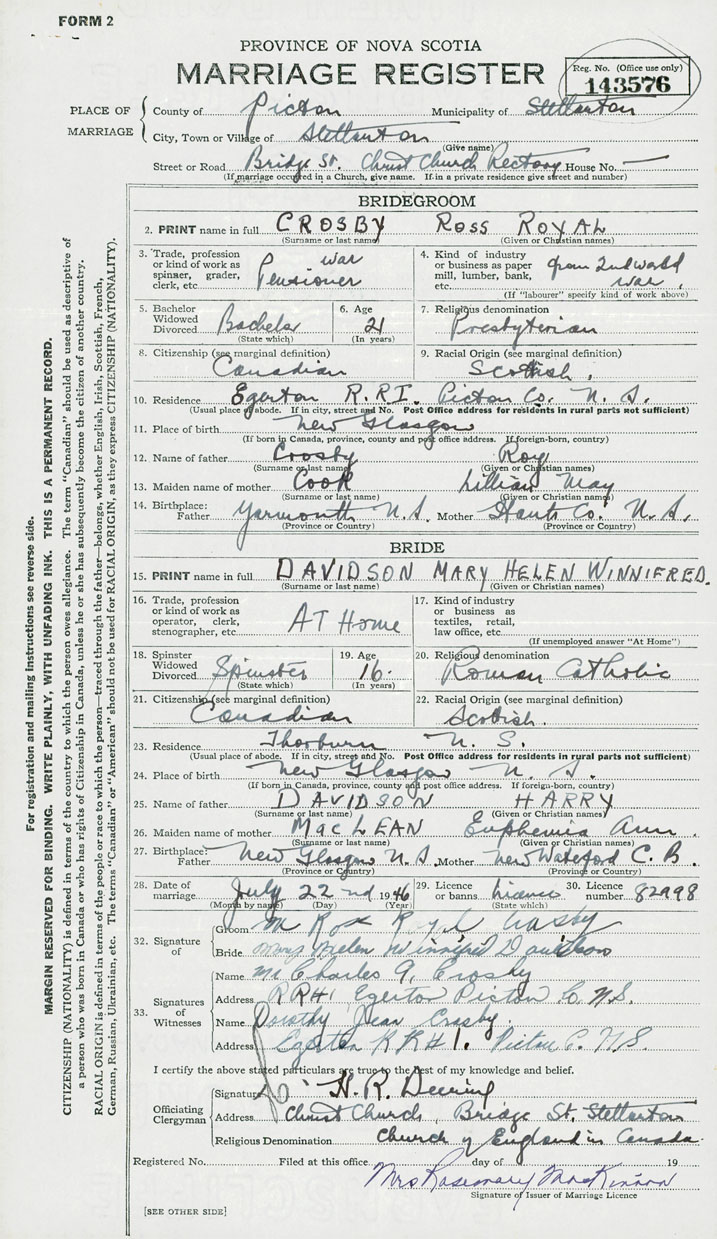 FORM 2
PROVINCE OF NOVA SCOTIA
MARRIAGE REGISTER
Reg. No. (Office use only)
143576
PLACE OF MARRIAGE
County of Pictou Municipality of Stellarton
City, Town or Village of Stellarton
(Give name)
Street or Road Bridge St. Christ Church Rectory House No. —
(If marriage occurred in a Church, give name. If in a private residence give street and number)
BRIDEGROOM
2. PRINT name in full CROSBY ROSS ROYAL
(Surname or last name) (Given or Christian names)
3. Trade, profession or kind of work as spinner, grader, clerk, etc. war Pensioner
4. Kind of industry or business as paper mill, lumber, bank, etc. from 2nd world war.
(If "labourer" specify kind of work above)
5. Bachelor Widowed Divorced Bachelor
(State which)
6. Age 21
(In years)
7. Religious denomination Presbyterian
8. Citizenship (see marginal definition) Canadian
9. Racial Origin (see marginal definition) Scottish.
10. Residence Egerton R.R.1. Pictou Co. N. S.
(Usual place of abode. If in city, street and No. Post Office address for residents in rural parts not sufficient)
11. Place of birth New Glasgow
(If born in Canada, province, county and post office address. If foreign-born, country)
12. Name of father Crosby Roy
(Surname or last name) (Given or Christian names)
13. Maiden name of mother Cook Lillian May
(Surname or last name) (Given or Christian names)
14. Birthplace: Father Yarmouth N.S. Mother Hants Co. N.S.
(Province or Country) (Province or Country)
BRIDE
15. PRINT name in full DAVIDSON MARY HELEN WINNIFRED.
(Surname or last name) (Given or Christian names)
16. Trade, profession or kind of work as operator, clerk, stenographer, etc. AT Home
17. Kind of industry or business as textiles, retail, law office, etc.
(If unemployed answer "At Home")
18. Spinster Widowed Divorced Spinster
(State which)
19. Age 16.
(In years)
20. Religious denomination Roman Catholic
21. Citizenship (see marginal definition) Canadian
22. Racial Origin (see marginal definition) Scottish.
23. Residence Thorburn N. S.
(Usual place of abode. If in city, street and No. Post Office address for residents in rural parts not sufficient)
24. Place of birth New Glasgow N. S.
(If born in Canada, province, county and post office address. If foreign-born, country)
25. Name of father DAVIDSON HARRY
(Surname or last name) (Given or Christian names)
26. Maiden name of mother MacLEAN Euphemia Ann.
(Surname or last name) (Given or Christian names)
27. Birthplace: Father New Glasgow N.S. Mother New Waterford C. B.
(Province or Country) (Province or Country)
28. Date of marriage July 22nd 1946
(Month by name) (Day) (Year)
29. Licence or banns Licence
(State which)
30. Licence number 82998
32. Signature of
Groom M Ross Royal Crosby
Bride Mary Helen Winnifred Davidson
33. Signatures of Witnesses
Name Charles A. Crosby
Address RR#1 Egerton Pictou Co N.S.
Name Dorothy Jean Crosby.
Address Egerton RR#1. Pictou C. N.S.
I certify the above stated particulars are true to the best of my knowledge and belief.
Officiating Clergyman
Signature H. R. Deering
Address Christ Church, Bridge St. Stellarton
Religious Denomination Church of England in Canada.
Registered No. Filed at this office day of 19
Mrs Rosemary MacKinnon
Signature of Issuer of Marriage Licence
[SEE OTHER SIDE]
For registration and mailing instructions see reverse side.
MARGIN RESERVED FOR BINDING. WRITE PLAINLY, WITH UNFADING INK. THIS IS A PERMANENT RECORD.
CITIZENSHIP (NATIONALITY) is defined in terms of the country to which the person owes allegiance. The term "Canadian" should be used as descriptive of
a person who was born in Canada or who has rights of Citizenship in Canada, unless he or she has subsequently become the citizen of another country.
RACIAL ORIGIN is defined in terms of the people or race to which the person—traced through the father—belongs, whether English, Irish, Scottish, French,
German, Russian, Ukrainian, etc. The terms "Canadian" or "American" should not be used for RACIAL ORIGIN, as they express CITIZENSHIP (NATIONALITY).